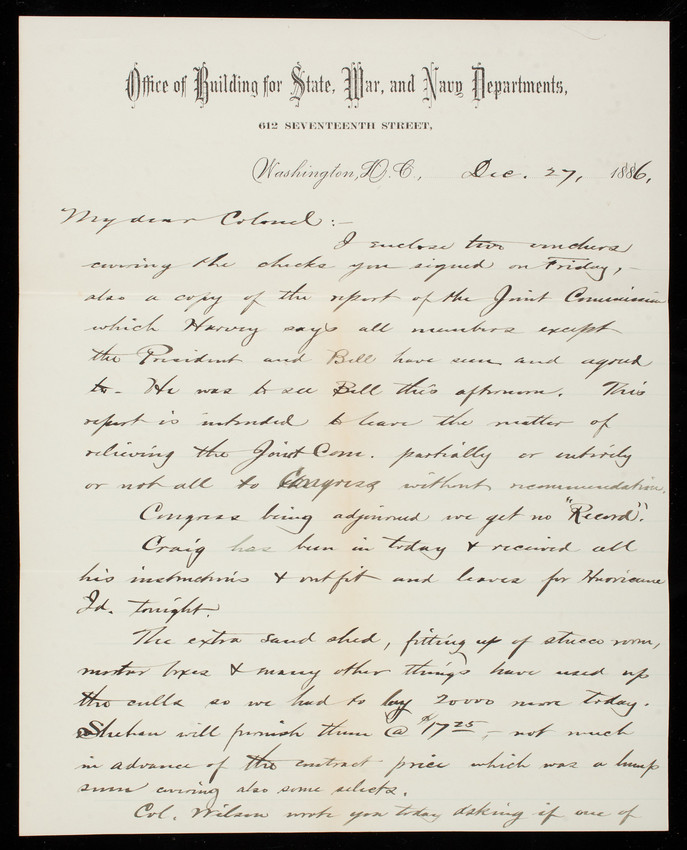 Office of Building for State, War, and Navy Departments,
612 SEVENTEENTH STREET,
Washington, D.C., Dec. 27, 1886,
My dear Colonel:-
I enclose two vouchers
covering the checks you signed on Friday,-
also a copy of the report of the Joint Commission
which Harvey says all members except
the President and Bell have seen and agreed
to- He was to see Bell this afternoon. This
report is intended to leave the matter of
relieving the Joint Com. partially or entirely
or not all to Congress without recommendation.
Congress being adjourned we get no "Record".
Craig has been in today & received all
his instructions & outfit and leaves for Hurricane
Id. tonight.
The extra sand shed, fitting up of stucco room,
mortar boxes & many other things have used up
the culls so we had to buy 20000 more today.
Sheehan will furnish them @ $17 25,- not much
in advance of the contract price which was a lump
sum covering also some selects.
Col. Wilson wrote you today asking if one of